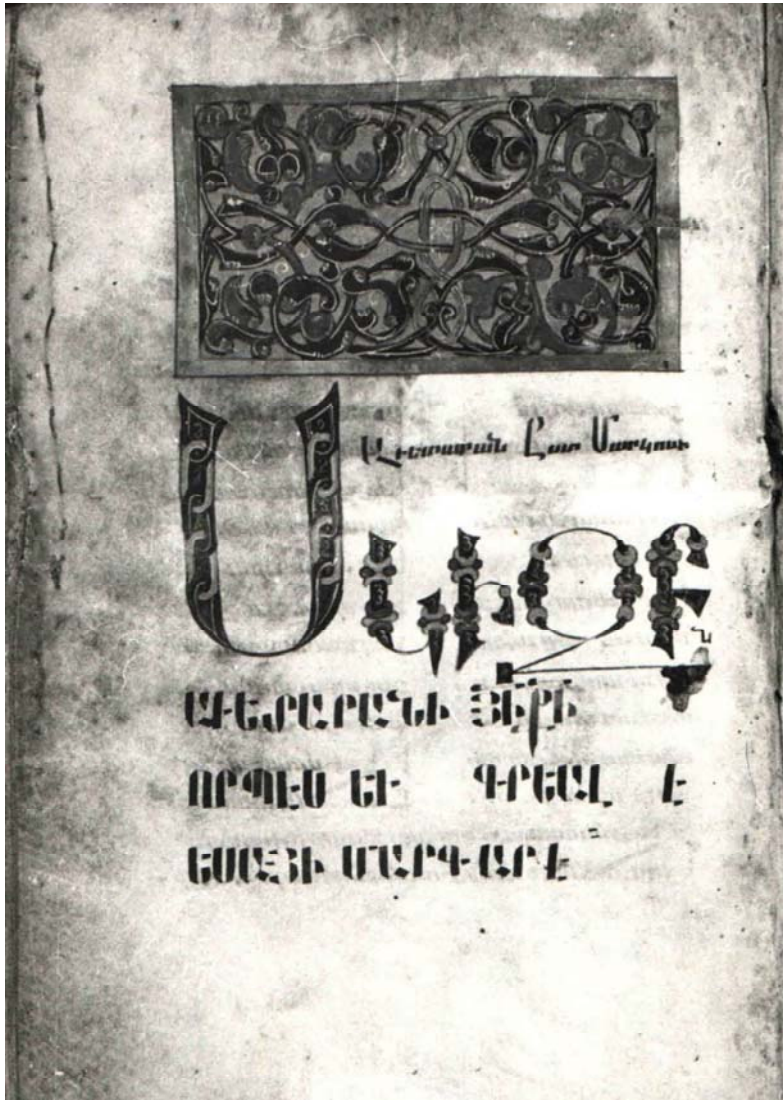 Աւետարան Ըստ Մարկոսի
ՍԿԻԶԲՆ
ԱՒԵՏԱՐԱՆԻ ՅԻՔԻ
ՈՐՊԷՍ ԵՒ ԳՐԵԱԼ Է
ԵՍԱՅԻ ՄԱՐԳԱՐԷ